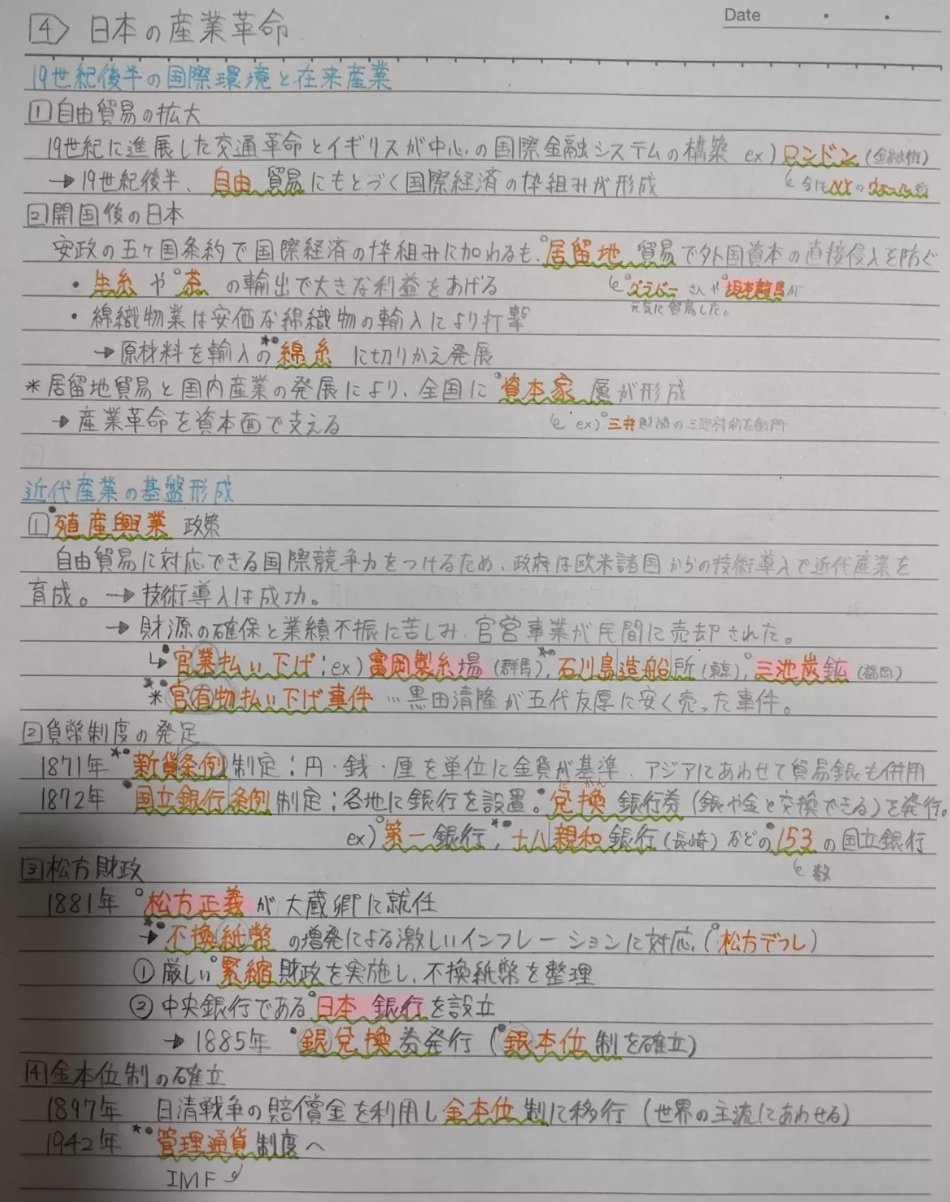 Date ・ ・
4 日本の産業革命
19世紀後半の国際環境と在来産業
1 自由貿易の拡大
19世紀に進展した交通革命とイギリスが中心の国際金融システムの構築 ex) ロンドン (金融街)
→ 19世紀後半、自由貿易にもとづく国際経済の枠組みが形成
今も の
2 開国後の日本
安政の五ヶ国条約で国際経済の枠組みに加わるも、居留地貿易で外国資本の直接侵入を防ぐ
・生糸や茶の輸出で大きな利益をあげる
グラバーさんや坂本龍馬が
元気に貿易した。
・綿織物業は安価な綿織物の輸入により打撃
→ 原材料を輸入の綿糸に切りかえ発展
* 居留地貿易と国内産業の発展により、全国に資本家層が形成
→ 産業革命を資本面で支える
ex) 三井財閥の
近代産業の基盤形成
1 殖産興業 政策
自由貿易に対応できる国際競争力をつけるため、政府は欧米諸国からの技術導入で近代産業を
育成。→ 技術導入は成功。
→ 財源の確保と業績不振に苦しみ、官営事業が民間に売却された。
↳ 官業払い下げ: ex) 富岡製糸場 (群馬)、石川島造船所 (東京)、三池炭鉱 (福岡)
* 官有物払い下げ事件 …黒田清隆が五代友厚に安く売った事件。
2 貨幣制度の発足
1871年 新貨条例制定：円・銭・厘を単位に金貨が基準、アジアにあわせて貿易銀も併用
1872年 国立銀行条例制定：各地に銀行を設置。兌換銀行券 (銀や金と交換できる) を発行。
だ かん
ex) 第一銀行、十八親和銀行 (長崎) などの153の国立銀行
数
3 松方財政
1881年 松方正義が大蔵卿に就任
→ 不換紙幣の増発による激しいインフレーションに対応。(松方デフレ)
① 厳しい緊縮財政を実施し、不換紙幣を整理
② 中央銀行である日本銀行を設立
→ 1885年 銀兌換券発行 (銀本位制を確立)
4 金本位制の確立
1897年 日清戦争の賠償金を利用し金本位制に移行 (世界の主流にあわせる)
1942年 管理通貨制度へ
IMF